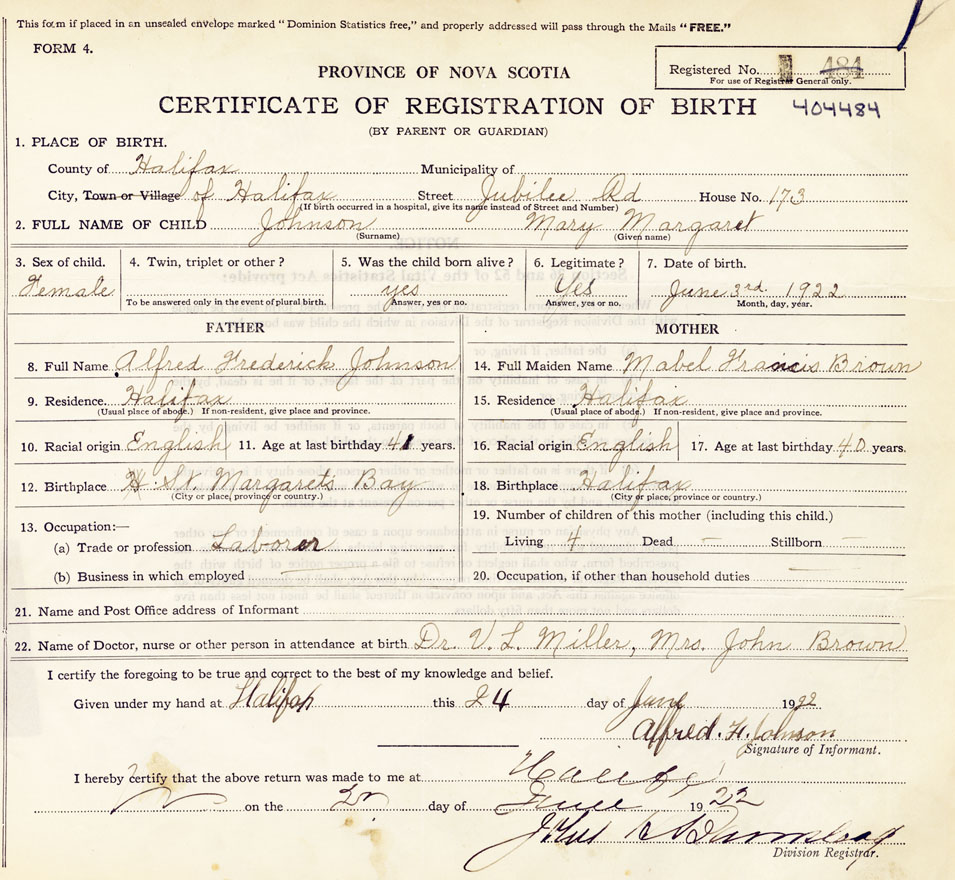 This form if placed in an unsealed envelope marked "Dominion Statistics free," and properly addressed will pass through the Mails "FREE."
FORM 4.
Registered No. 484
For use of Registrar General only.
PROVINCE OF NOVA SCOTIA
CERTIFICATE OF REGISTRATION OF BIRTH 404484
(BY PARENT OR GUARDIAN)
1. PLACE OF BIRTH.
County of Halifax Municipality of
City, Town or Village of Halifax Street Jubilee Rd House No. 173
(If birth occurred in a hospital, give its name instead of Street and Number)
2. FULL NAME OF CHILD Johnson Mary Margaret
(Surname) (Given name)
3. Sex of child. 4. Twin, triplet or other? 5. Was the child born alive? 6. Legitimate? 7. Date of birth.
Female yes Yes June 3rd. 1922
To be answered only in the event of plural birth. Answer, yes or no. Answer, yes or no. Month, day, year.
FATHER MOTHER
8. Full Name Alfred Frederick Johnson 14. Full Maiden Name Mabel Francis Brown
9. Residence. Halifax 15. Residence Halifax
(Usual place of abode.) If non-resident, give place and province. (Usual place of abode.) If non-resident, give place and province.
10. Racial origin English 11. Age at last birthday 41 years. 16. Racial origin English 17. Age at last birthday 40 years.
12. Birthplace H St. Margarets Bay 18. Birthplace Halifax
(City or place, province or country.) (City or place, province or country.)
13. Occupation:— 19. Number of children of this mother (including this child.)
(a) Trade or profession Laborer Living 4 Dead — Stillborn —
(b) Business in which employed — 20. Occupation, if other than household duties
21. Name and Post Office address of Informant
22. Name of Doctor, nurse or other person in attendance at birth Dr. V. L. Miller, Mrs. John Brown
I certify the foregoing to be true and correct to the best of my knowledge and belief.
Given under my hand at Halifax this 24 day of June 1922
Alfred. F. Johnson
Signature of Informant.
I hereby certify that the above return was made to me at Halifax
on the day of June 1922
John
Division Registrar.